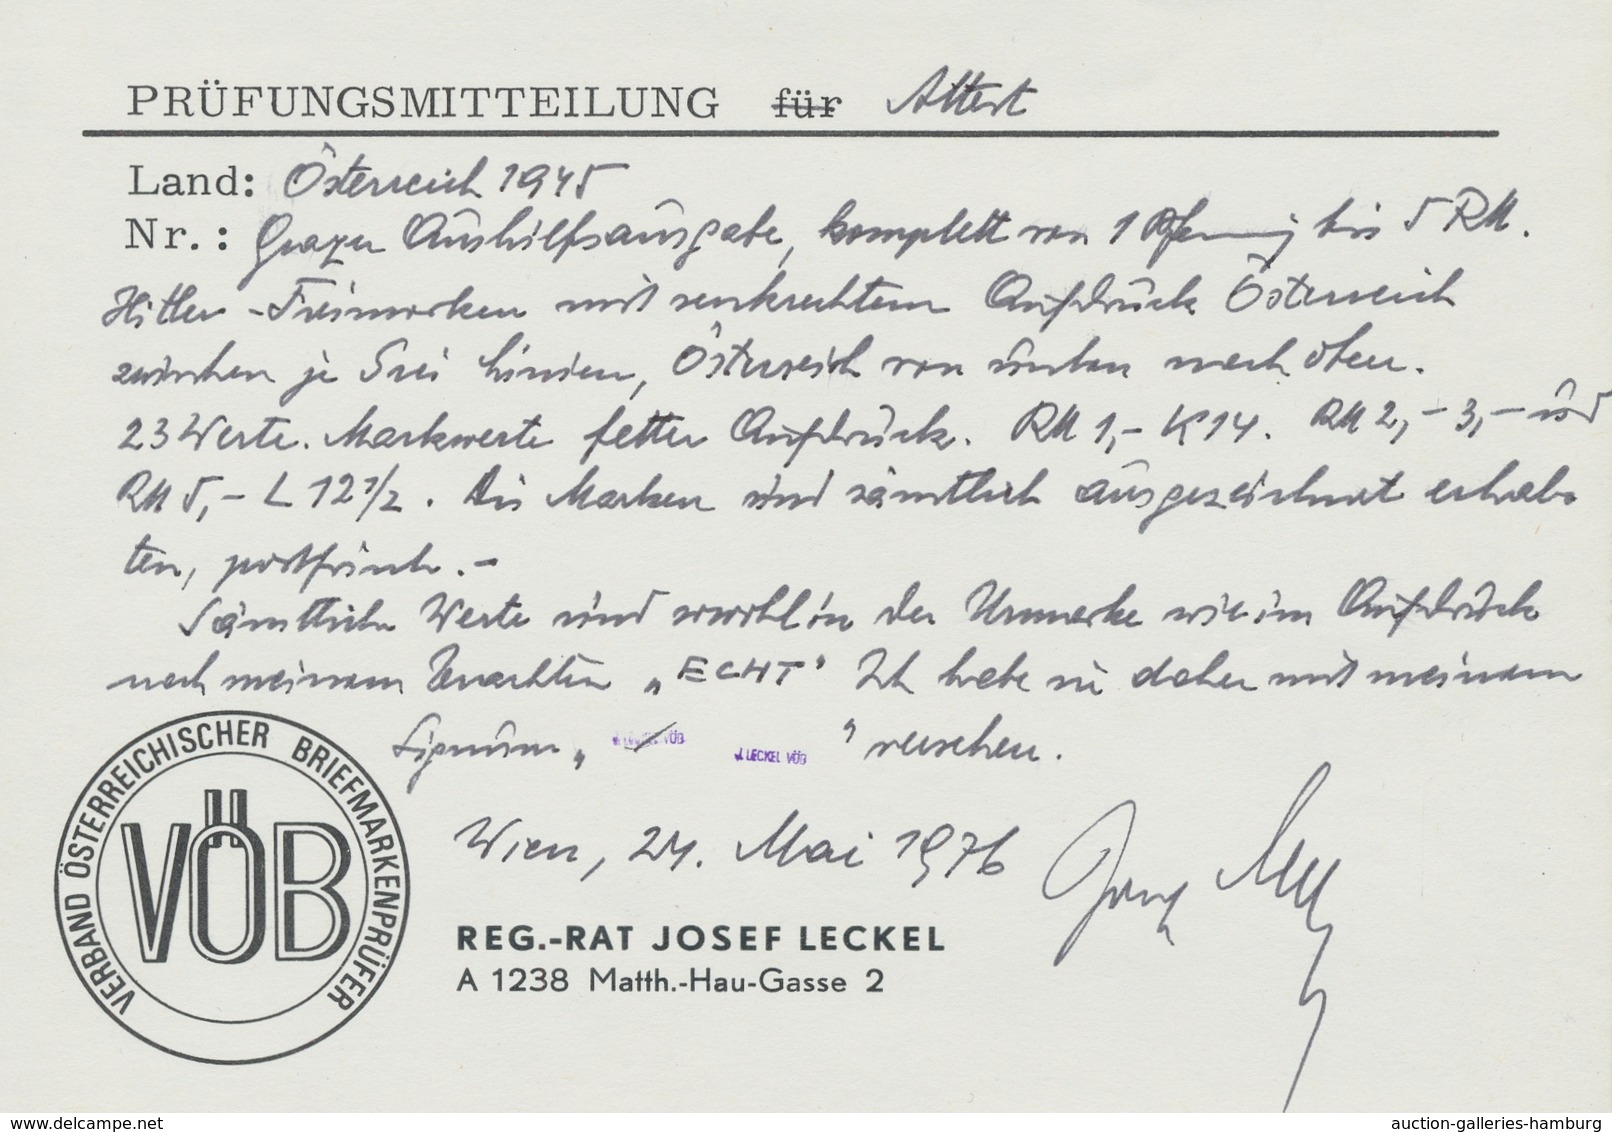 PRÜFUNGSMITTEILUNG für Attest
Land: Österreich 1945
Nr.: Grazer Aushilfsausgabe, komplett von 1 Pfennig bis 5 RM.
Hitler-Freimarken mit senkrechtem Aufdruck Österreich
zwischen je drei Linien, Österreich von unten nach oben.
23 Werte. Markwerte fetter Aufdruck. RM 1,- K 14. RM 2,- 3,- und
RM 5,- L 12 1/2. Die Marken sind sämtlich ausgezeichnet erhal-
ten, postfrisch.-
Sämtliche Werte sind sowohl in der Urmarke wie im Aufdruck
nach meinem Erachten „ECHT" Ich habe sie daher mit meinem
Signum „ J. LECKEL VÖB " versehen.
Wien, 24. Mai 1976
REG.-RAT JOSEF LECKEL
A 1238 Matth.-Hau-Gasse 2
VERBAND ÖSTERREICHISCHER BRIEFMARKENPRÜFER
VÖB
www.delcampe.net
auction-galleries-hamburg